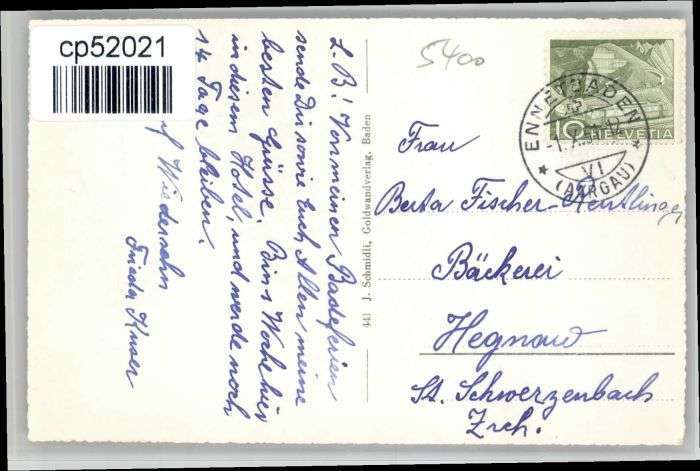 cp52021
L. B! Von meinen Badeferien
sende Dir sowie Euch Allen meine
besten Grüsse. Bins Woche hier
in diesem Hotel, und werde noch
14 Tage bleiben.
Wiedersehn
Frieda
441 J. Schmidli, Goldwandverlag. Baden
5400
10 HELVETIA
ENNETBADEN
VI
(AARGAU)
Frau
Berta Fischer-Reutlinger
Bäckerei
Hegnau
St. Schwerzenbach
Zrch.